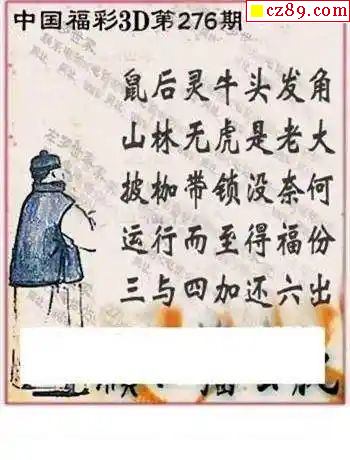 cz89.com
中国福彩3D第276期
鼠后灵牛头发角
山林无虎是老大
披枷带锁没奈何
运行而至得福份
三与四加还六出